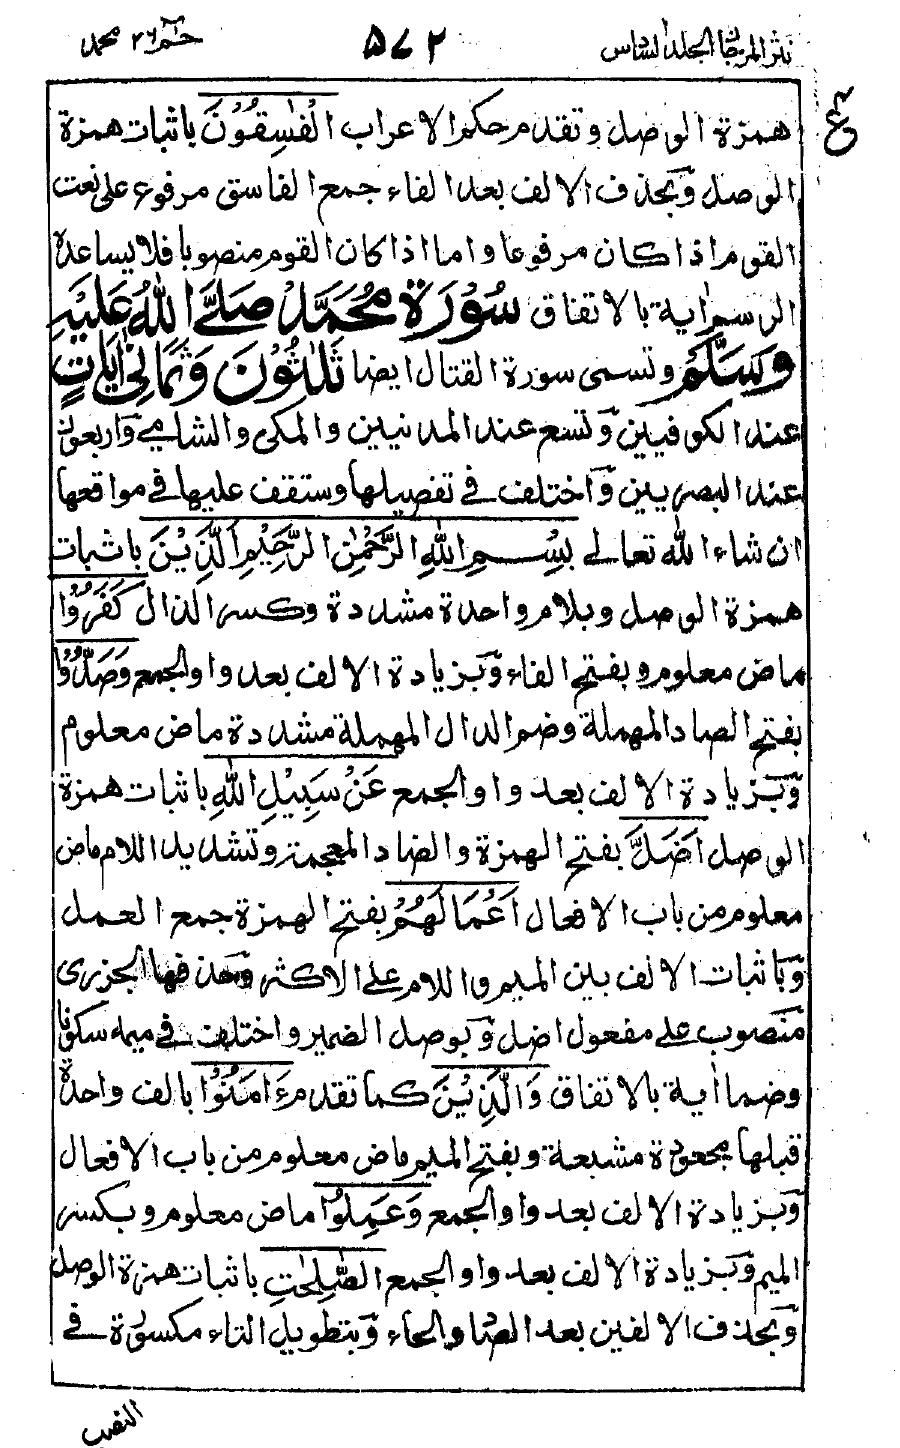 نثر المرجان المجلد السادس
۵۷۲
حٰمٓ ۲۶ محمد
همزة الوصل وتقدم حكم الاعراب الْفٰسِقُوْنَ باثبات همزة
الوصل وَبحذف الالف بعد الفاء جمع الفاسق مرفوع على نعت
القوم اذا كان مرفوعا واما اذا كان القوم منصوبا فلا يساعده
الرسم اٰية بالاتفاق سُوْرَةُ مُحَمَّدْ صَلَّے اللهُ عَلَيْهِ
وَسَلَّمْ وتسمى سورة القتال ايضا ثَلٰثُوْنَ وَثَمَانِیْ اٰيَاتٍ
عند الكوفيين وَتسع عند المدنيين والمكى والشامے وَاربعون
عند البصريين وَاختلف فے تفصيلها وستقف عليها فے مواقعها
ان شاء الله تعالے بِسْــمِ اللهِ الرَّحْمٰنِ الرَّحِيْمِ اَلَّذِيْنَ باثبات
همزة الوصل وبلام واحدة مشددة وكسر الذال كَفَرُوْا
ماض معلوم وبفتح الفاء وَبزيادة الالف بعد واو الجمع وَصَدُّوْا
بفتح الصاد المهملة وضم الدال المهملة مشددة ماض معلوم
وَبزيادة الالف بعد واو الجمع عَنْ سَبِيْلِ اللهِ باثبات همزة
الوصل اَضَلَّ بفتح الهمزة والضاد المعجمة وتشديد اللام ماض
معلوم من باب الافعال اَعْمَالَهُمْ بفتح الهمزة جمع العمل
وَباثبات الالف بين الميم واللام على الاكثر وحذفها الجزرى
منصوب على مفعول اضل وَبوصل الضمير واختلف فے ميمه سكونا
وضما اٰية بالاتفاق وَالَّذِيْنَ كما تقدم ءَامَنُوْا بالف واحدة
قبلها مجعودة مشبعة وبفتح الميم ماض معلوم من باب الافعال
وَبزيادة الالف بعد واو الجمع وَعَمِلُوا ماض معلوم وبكسر
الميم وَبزيادة الالف بعد واو الجمع الصّٰلِحٰتِ باثبات همزة الوصل
وَبحذف الالفين بعد الصاد والحاء وَبتطويل التاء مكسورة فے
النصب